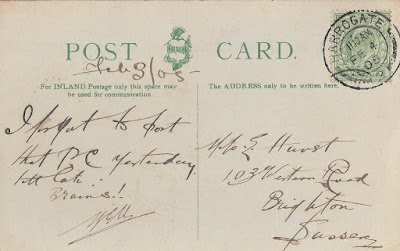 POST CARD.
Feb 3/05
For INLAND Postage only this space may
be used for communication.
The ADDRESS only to be written here.
HARROGATE
FE 4
05
I forgot to post
that PC yesterday
till late:
Brains!!
Miss E Hurst
103 Western Road
Brighton
Sussex